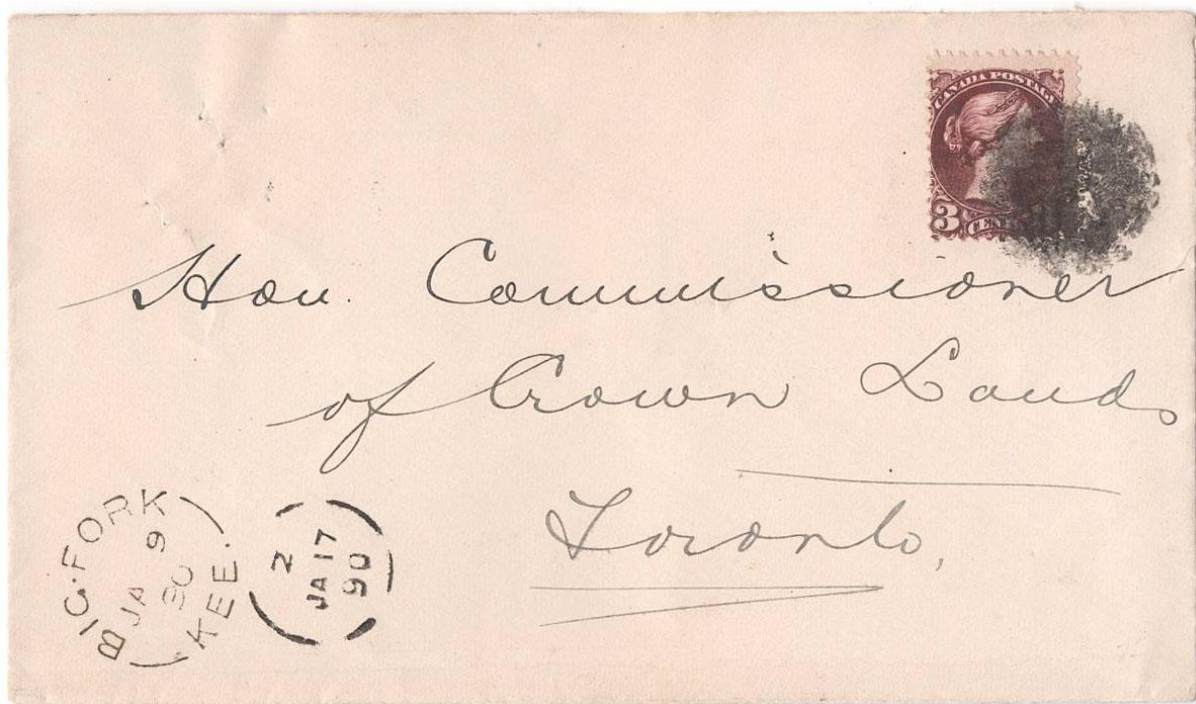 CANADA POSTAGE
3 CEN
Hon. Commissioner
of Crown Lands
Toronto,
BIG-FORK
JA 9
90
KEE.
2
JA 17
90